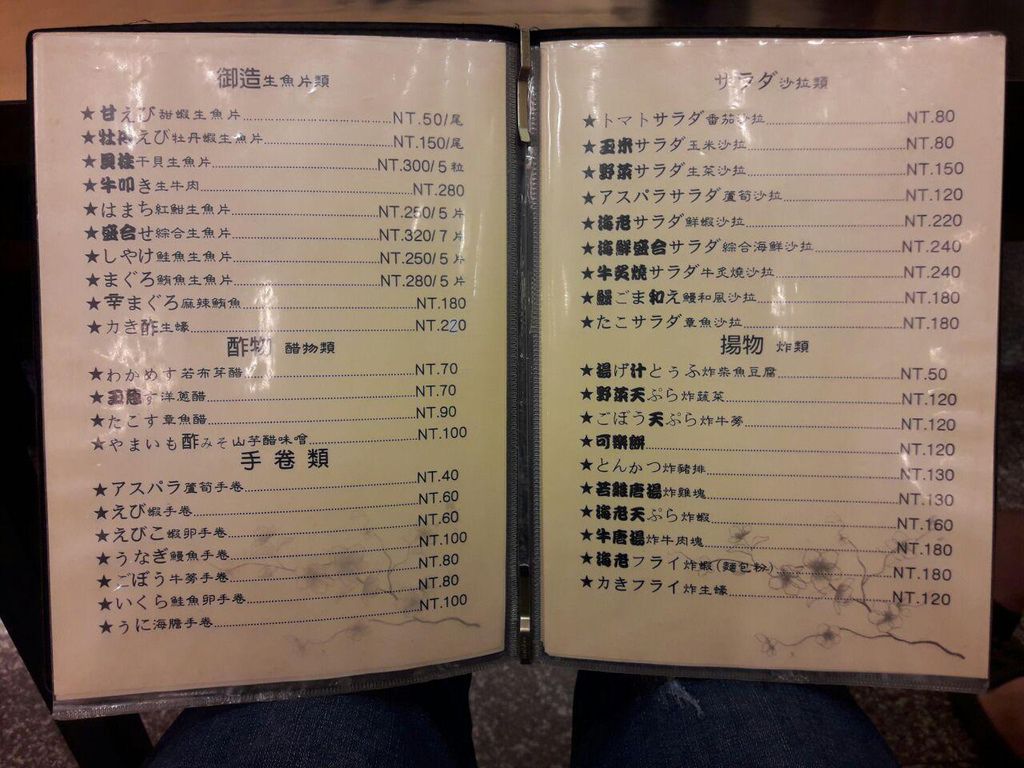 御造生魚片類
★甘えび甜蝦生魚片 NT.50/尾
★牡丹えび牡丹蝦生魚片 NT.150/尾
★貝柱干貝生魚片 NT.300/5粒
★牛叩き生牛肉 NT.280
★はまち紅魽生魚片 NT.250/5片
★盛合せ綜合生魚片 NT.320/7片
★しやけ鮭魚生魚片 NT.250/5片
★まぐろ鮪魚生魚片 NT.280/5片
★辛まぐろ麻辣鮪魚 NT.180
★カき酢生蠔 NT.220
酢物 醋物類
★わかめす若布芽醋 NT.70
★玉葱す洋蔥醋 NT.70
★たこす章魚醋 NT.90
★やまいも酢みそ山芋醋味噌 NT.100
手卷類
★アスパラ蘆筍手卷 NT.40
★えび蝦手卷 NT.60
★えびこ蝦卵手卷 NT.60
★うなぎ鰻魚手卷 NT.100
★ごぼう牛蒡手卷 NT.80
★いくら鮭魚卵手卷 NT.80
★うに海膽手卷 NT.100
サラダ沙拉類
★トマトサラダ番茄沙拉 NT.80
★玉米サラダ玉米沙拉 NT.80
★野菜サラダ生菜沙拉 NT.150
★アスパラサラダ蘆筍沙拉 NT.120
★海老サラダ鮮蝦沙拉 NT.220
★海鮮盛合サラダ綜合海鮮沙拉 NT.240
★牛炙燒サラダ牛炙燒沙拉 NT.240
★鰻ごま和え鰻和風沙拉 NT.180
★たこサラダ章魚沙拉 NT.180
揚物 炸類
★揚げ汁とぅふ炸柴魚豆腐 NT.50
★野菜天ぷら炸蔬菜 NT.120
★ごぼう天ぷら炸牛蒡 NT.120
★可樂餅 NT.120
★とんかつ炸豬排 NT.130
★若雞唐揚炸雞塊 NT.130
★海老天ぷら炸蝦 NT.160
★牛唐揚炸牛肉塊 NT.180
★海老フライ炸蝦(麵包粉) NT.180
★カきフライ炸生蠔 NT.120